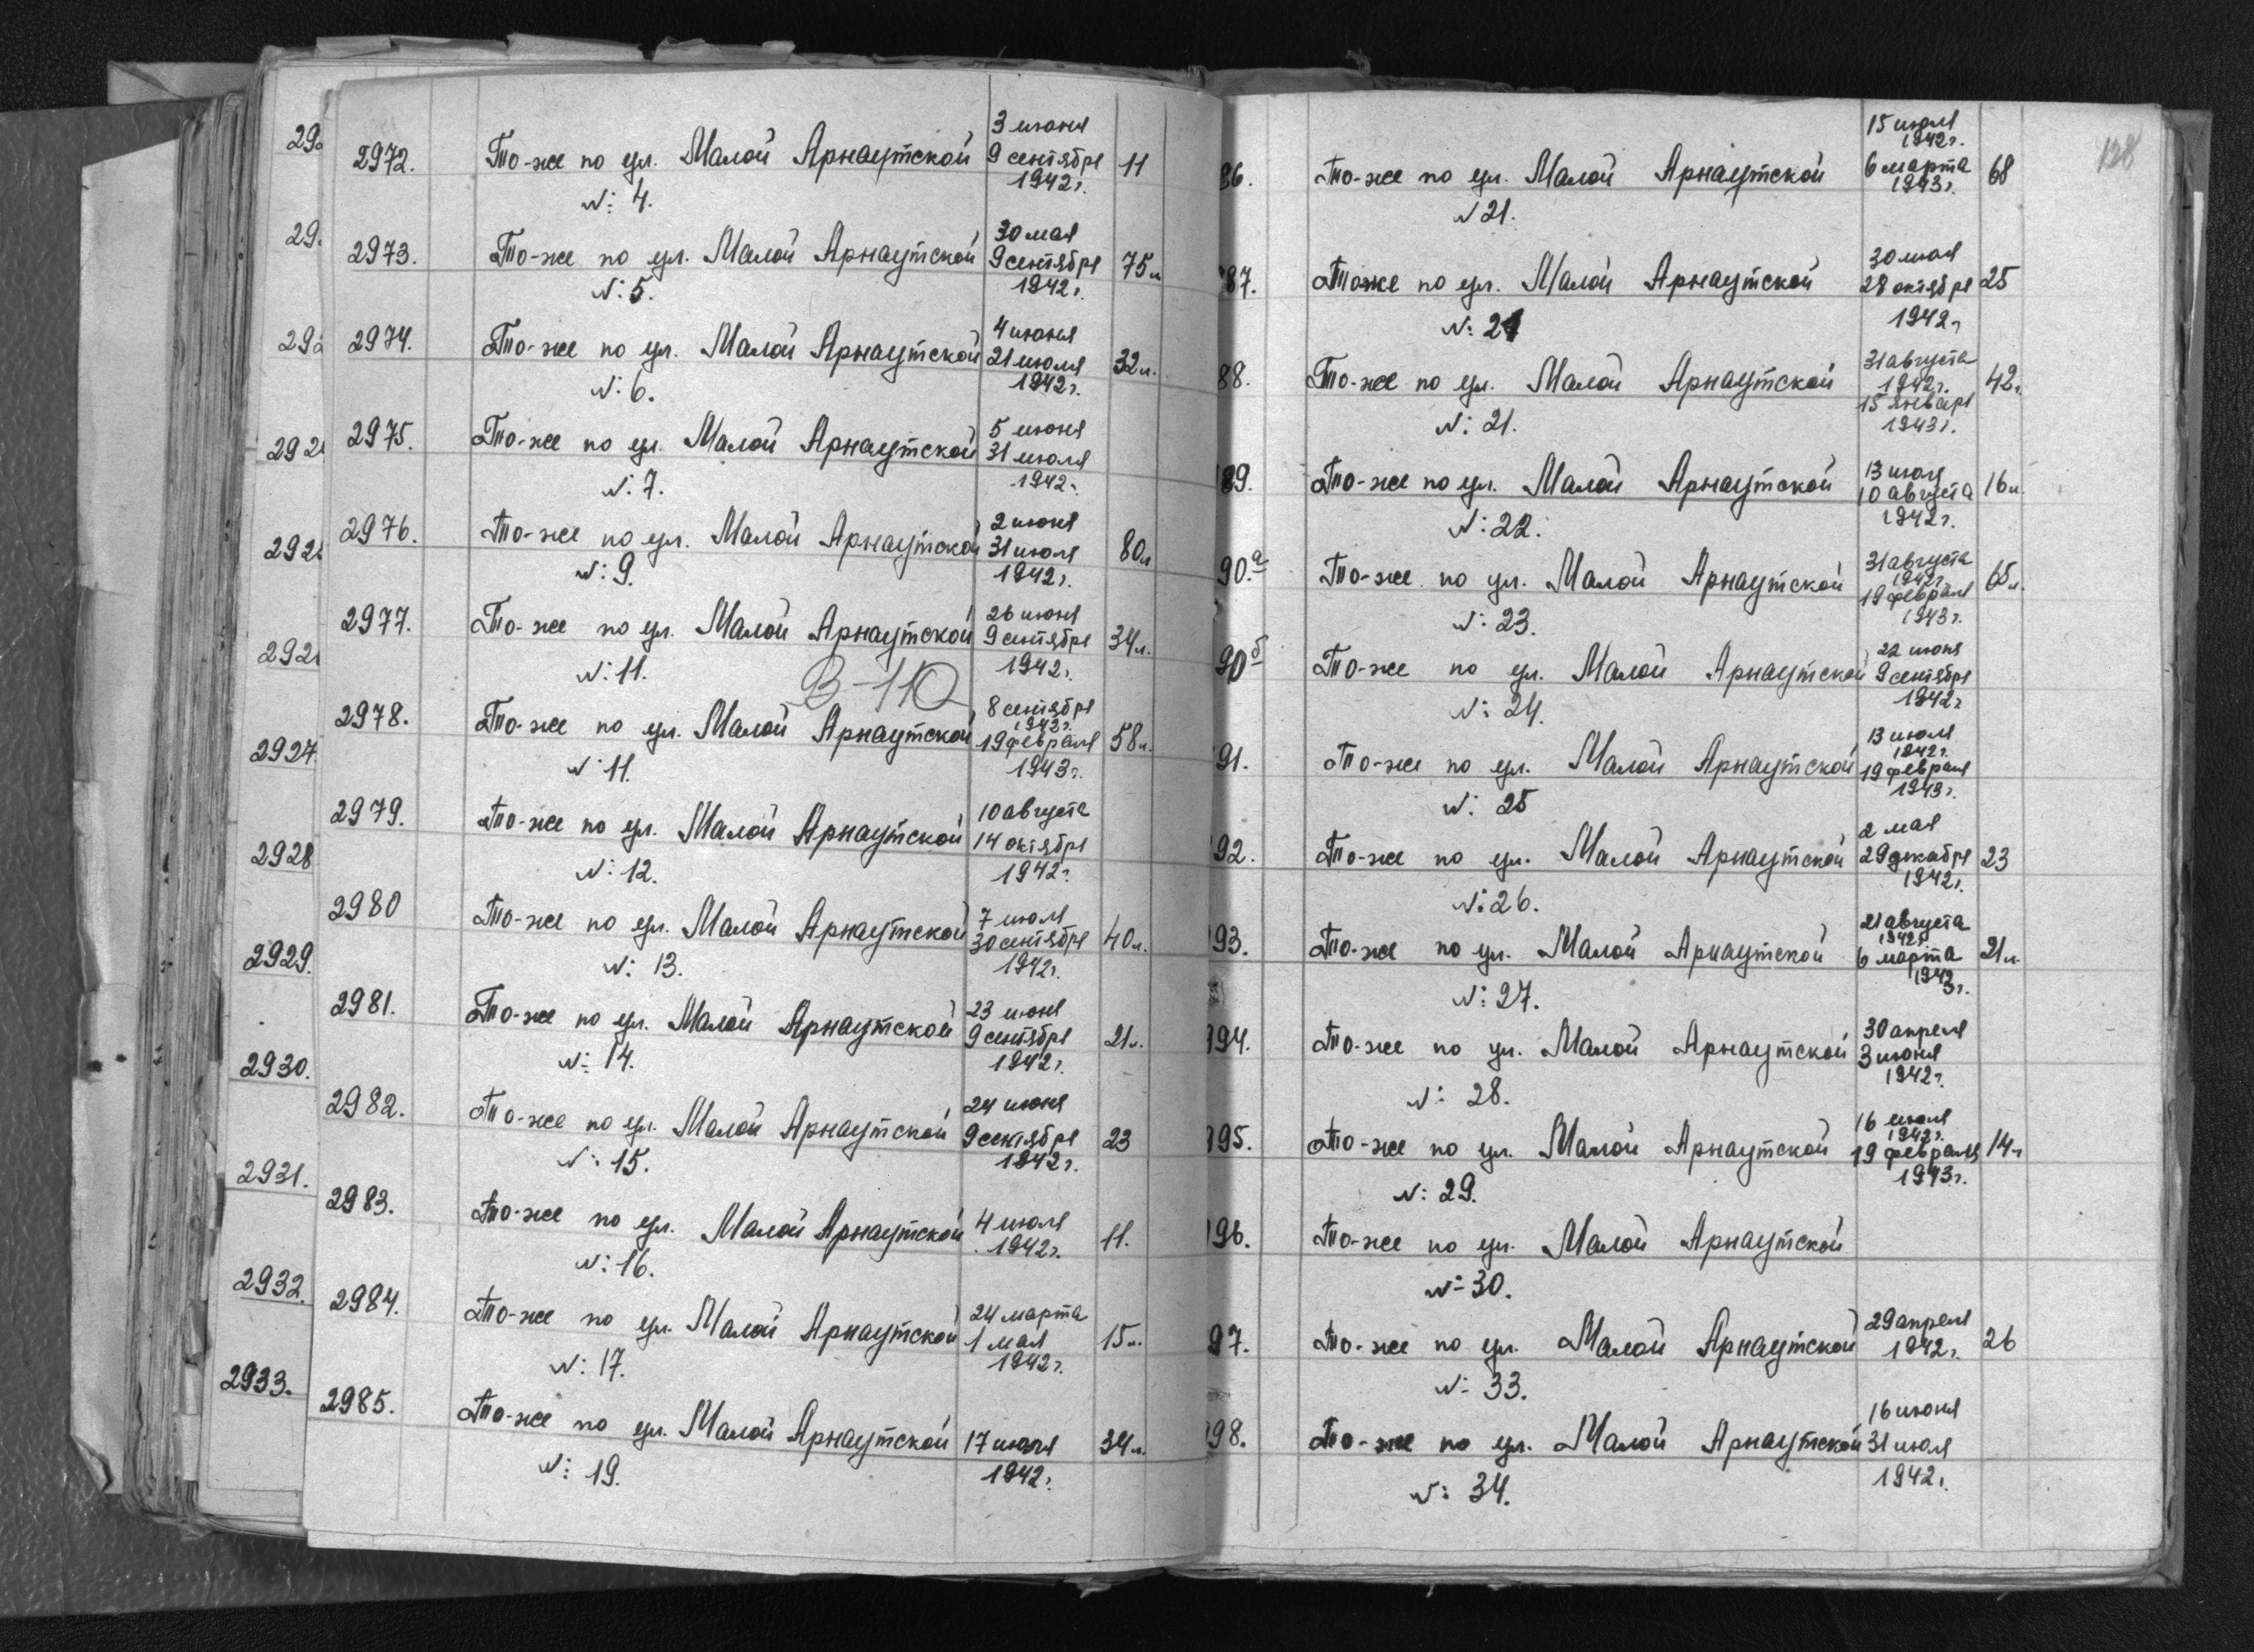 292
2972.
То-же по ул. Малой Арнаутской
№ 4.
3 июня
9 сентября
1942 г.
11
29.
2973.
То-же по ул. Малой Арнаутской
№ 5.
30 мая
9 сентября
1942 г.
75 л
292
2974.
То-же по ул. Малой Арнаутской
№ 6.
4 июня
21 июля
1942 г.
32 л.
292
2975.
То-же по ул. Малой Арнаутской
№ 7.
5 июня
31 июля
1942 г.
292
2976.
То-же по ул. Малой Арнаутской
№ 9.
2 июня
31 июля
1942 г.
80 л
292
2977.
То-же по ул. Малой Арнаутской
№ 11.
26 июня
9 сентября
1942 г.
34 л.
В-110
2978.
То-же по ул. Малой Арнаутской
№ 11.
8 сентября
1942 г.
19 февраля
1943 г.
58 л.
2927
2979.
То-же по ул. Малой Арнаутской
№ 12.
10 августа
14 октября
1942 г.
2928
2980
То-же по ул. Малой Арнаутской
№ 13.
7 июля
30 сентября
1942 г.
40 л.
2929.
2981.
То-же по ул. Малой Арнаутской
№ 14.
23 июня
9 сентября
1942 г.
21 л.
2930.
2982.
То-же по ул. Малой Арнаутской
№ 15.
24 июня
9 сентября
1942 г.
23
2931.
2983.
То-же по ул. Малой Арнаутской
№ 16.
4 июля
1942 г.
11.
2932.
2984.
То-же по ул. Малой Арнаутской
№ 17.
24 марта
1 мая
1942 г.
15 л.
2933.
2985.
То-же по ул. Малой Арнаутской
№ 19.
17 июля
1942 г.
34 л.
128
86.
То-же по ул. Малой Арнаутской
№ 21.
15 июля
1942 г.
6 марта
1943 г.
68
87.
Тоже по ул. Малой Арнаутской
№ 21
30 мая
28 октября
1942 г
25
88.
То-же по ул. Малой Арнаутской
№ 21.
31 августа
1942 г.
15 января
1943 г.
42 л.
89.
То-же по ул. Малой Арнаутской
№ 22.
13 июля
10 августа
1942 г.
16 л.
90.а
То-же по ул. Малой Арнаутской
№ 23.
31 августа
1942 г.
19 февраля
1943 г.
65 л.
90 б
То-же по ул. Малой Арнаутской
№ 24.
22 июня
9 сентября
1942 г
91.
То-же по ул. Малой Арнаутской
№ 25
13 июля
1942 г.
19 февраля
1943 г.
92.
То-же по ул. Малой Арнаутской
№ 26.
2 мая
29 декабря
1942 г.
23
93.
То-же по ул. Малой Арнаутской
№ 27.
21 августа
1942 г.
6 марта
1943 г.
21 л.
94.
То-же по ул. Малой Арнаутской
№ 28.
30 апреля
3 июня
1942 г.
95.
То-же по ул. Малой Арнаутской
№ 29.
16 июля
1942 г.
19 февраля
1943 г.
14 л
96.
То-же по ул. Малой Арнаутской
№ 30.
97.
То-же по ул. Малой Арнаутской
№ 33.
29 апреля
1942 г.
26
98.
То-же по ул. Малой Арнаутской
№ 34.
16 июня
31 июля
1942 г.